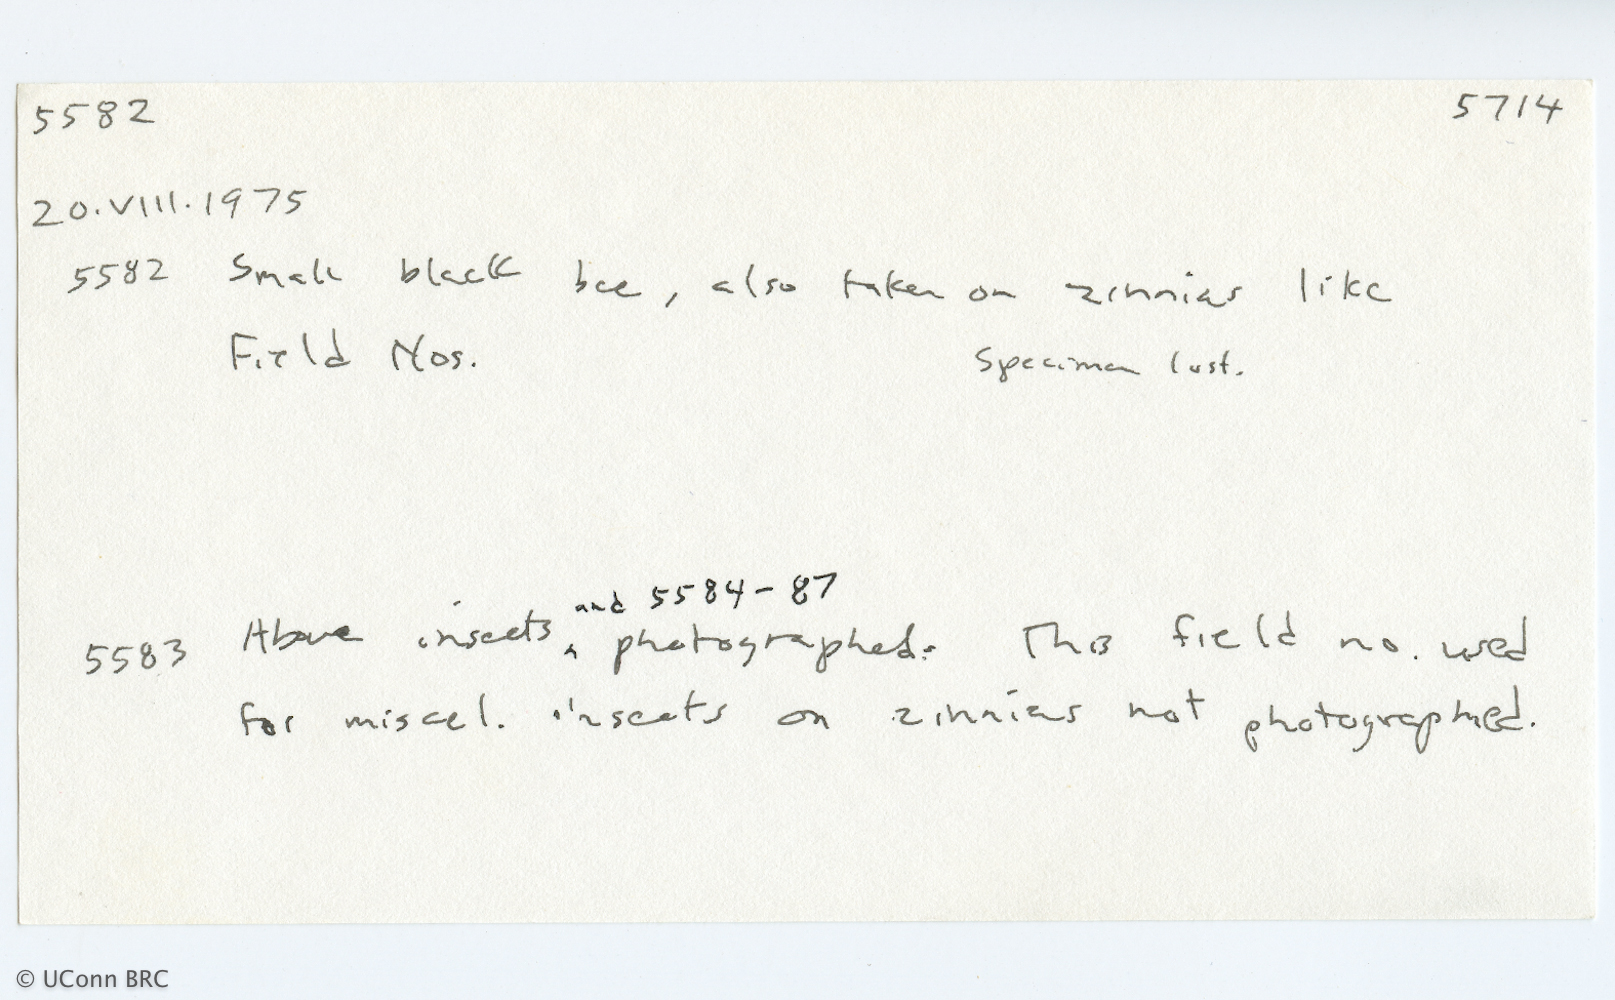 5582 5714
20.VIII.1975
5582 Small black bee, also taken on zinnias like
Field Nos. Specimen lost.
and 5584-87
5583 Above insects ‸ photographed. This field no. used
for miscel. insects on zinnias not photographed.
© UConn BRC